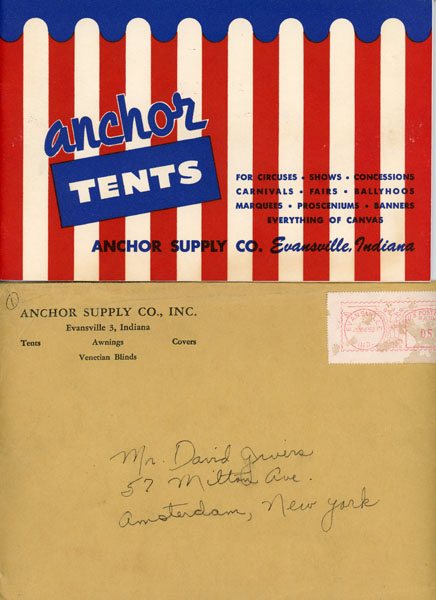 anchor
TENTS
FOR CIRCUSES • SHOWS • CONCESSIONS
CARNIVALS • FAIRS • BALLYHOOS
MARQUEES • PROSCENIUMS • BANNERS
EVERYTHING OF CANVAS
ANCHOR SUPPLY CO. Evansville, Indiana
1
ANCHOR SUPPLY CO., INC.
Evansville 3, Indiana
Tents Awnings Covers
Venetian Blinds
Mr. David Grivers
57 Milton Ave.
Amsterdam, New York